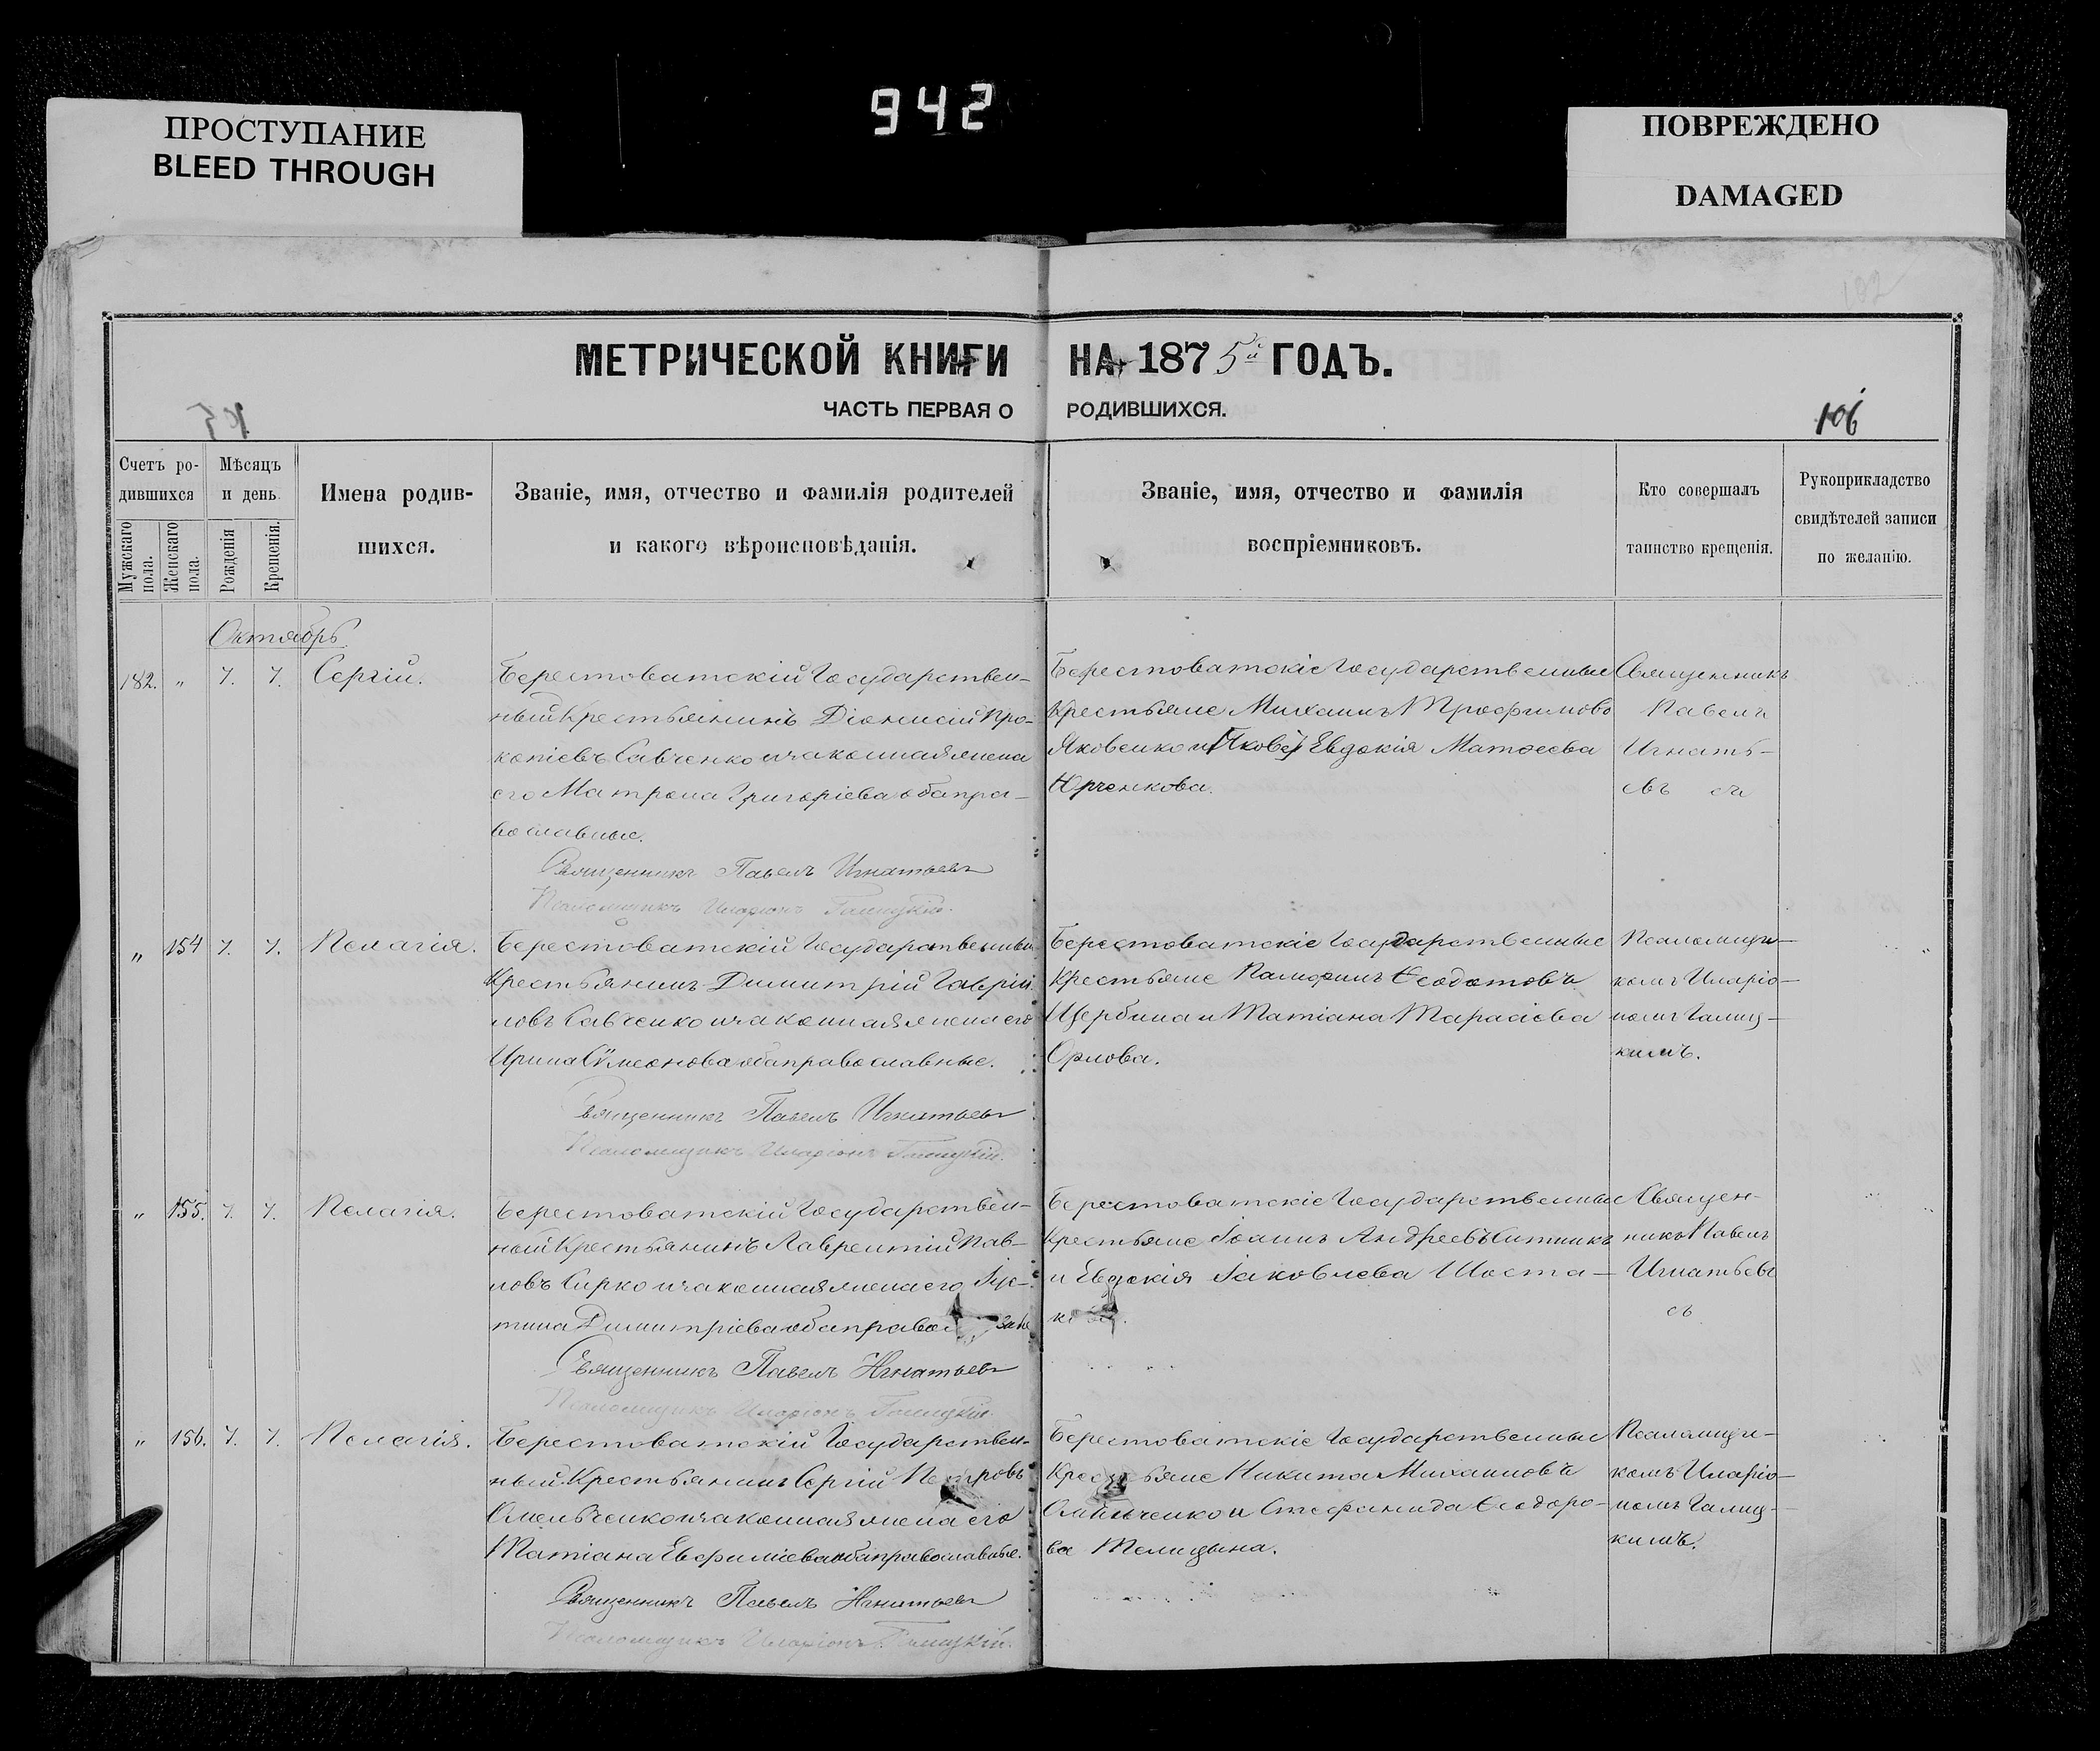 942
ПРОСТУПАНИЕ
BLEED THROUGH
ПОВРЕЖДЕНО
DAMAGED
МЕТРИЧЕСКОЙ КНИГИ НА 1875й ГОДЪ.
ЧАСТЬ ПЕРВАЯ О РОДИВШИХСЯ.
106
Счетъ ро-
дившихся
Мужскаго пола.
Женскаго пола.
Мѣсяцъ
и день
Рожденія
Крещенія.
Имена родив-
шихся.
Званіе, имя, отчество и фамилія родителей
и какого вѣроисповѣданія.
Званіе, имя, отчество и фамилія
воспріемниковъ.
Кто совершалъ
таинство крещенія.
Рукоприкладство
свидѣтелей записи
по желанію.
Октябрь
182. " 7. 7. Сергій.
Берестоватскій Государствен-
ный Крестьянинъ Діонисій Про-
копіевъ Савченко и законная жена
его Матрона Григоріева оба пра-
вославные.
Священникъ Павелъ Игнатьевъ
Псаломщикъ Иларіонъ Галицкій.
Берестоватскіе Государственные
Крестьяне Михаилъ Трофимовъ
Яковенко и Евдокія Матѳеева
Юрченкова.
Священникъ
Павелъ
Игнать-
евъ съ
" 154 7. 7. Пелагія.
Берестоватскій Государственный
Крестьянинъ Димитрій Гаврiи-
ловъ Савченко и законная жена его
Ирина Сѵмеонова оба православные.
Священникъ Павелъ Игнатьевъ
Псаломщикъ Иларіонъ Галицкій.
Берестоватскіе Государственные
Крестьяне Памфилъ Ѳеодотовъ
Щербина и Татіана Тарасіева
Орлова.
Псаломщи-
комъ Иларіо-
номъ Галиц-
кимъ.
" 155. 7. 7. Пелагія.
Берестоватскій Государствен-
ный Крестьянинъ Лаврентій Пав-
ловъ Сирко и законная жена его Іус-
тина Димитріева оба
Священникъ Павелъ Игнатьевъ
Псаломщикъ Иларіонъ Галицкій.
Берестоватскіе Государственные
Крестьяне Іоаннъ Андреевъ Ситникъ
и Евдокія Іаковлева Шоста-
Священ-
никъ Павелъ
Игнатьевъ
съ
" 156. 7. 7. Пелагія.
Берестоватскій Государствен-
ный Крестьянинъ Сергій Петровъ
Омельченко и законная жена его
Татіана Евфиміева оба православные.
Священникъ Павелъ Игнатьевъ
Псаломщикъ Иларіонъ Галицкій.
Берестоватскіе Государственные
Крестьяне Никита Михаиловъ
Омельченко и Стефанида Ѳеодоро-
ва Телицына.
Псаломщи-
комъ Иларіо-
номъ Галиц-
кимъ.